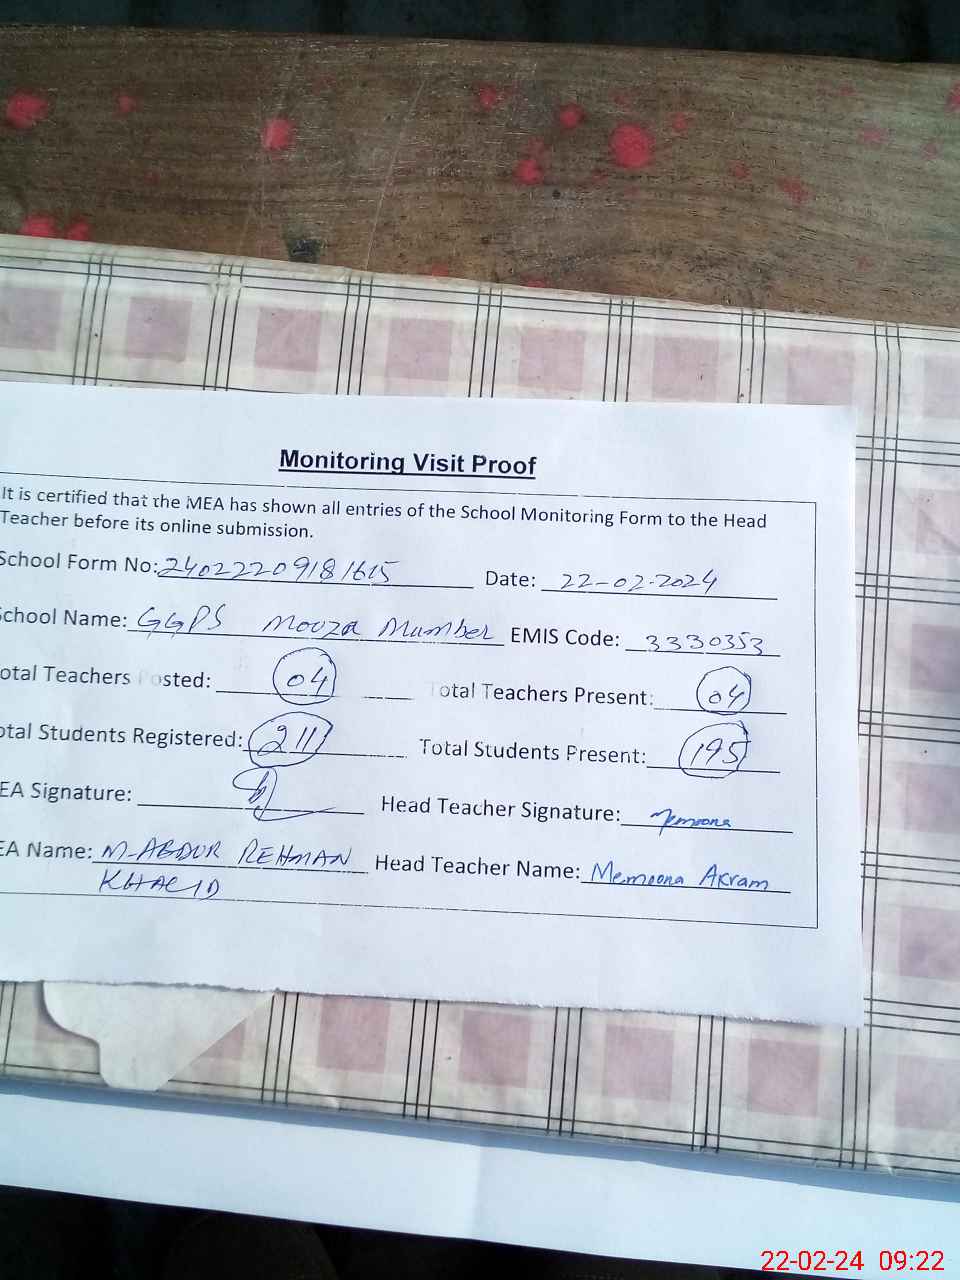 Monitoring Visit Proof
It is certified that the MEA has shown all entries of the School Monitoring Form to the Head
Teacher before its online submission.
School Form No: 24022209181615 Date: 22-02-2024
School Name: GGPS Mouza Mumber EMIS Code: 3330353
otal Teachers Posted: 04 Total Teachers Present: 04
otal Students Registered: 211 Total Students Present: 195
EA Signature: Head Teacher Signature: Memoona
EA Name: M-ABDUR REHMAN KHALID Head Teacher Name: Memoona Akram
22-02-24 09:22